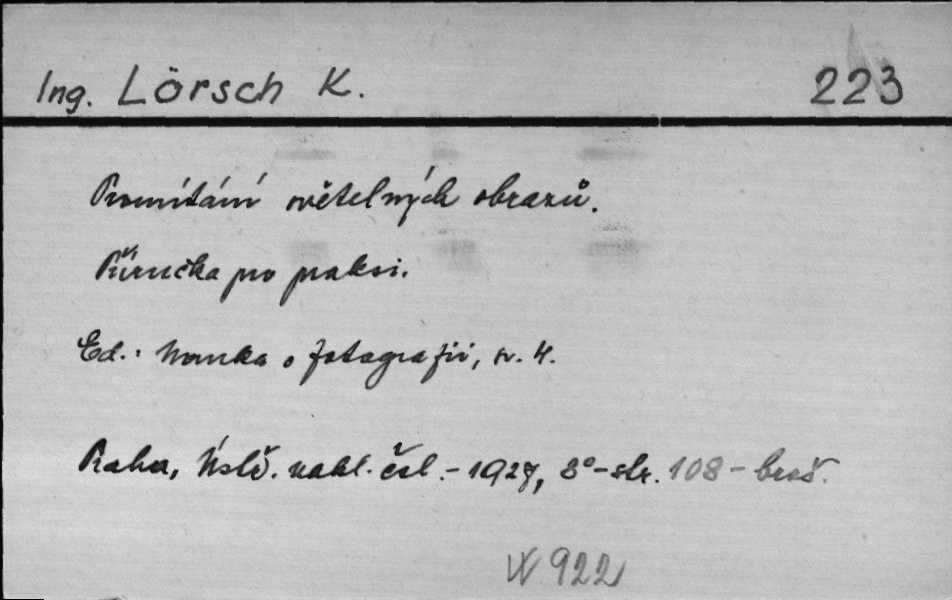 Ing. Lörsch K. 223
Promítání světelných obrazů.
Příručka pro praksi.
Ed.: Nauka o fotografii, sv. 4.
Praha, Ústř. nakl. čsl. - 1927, 8° - str. 108 - brož.
922